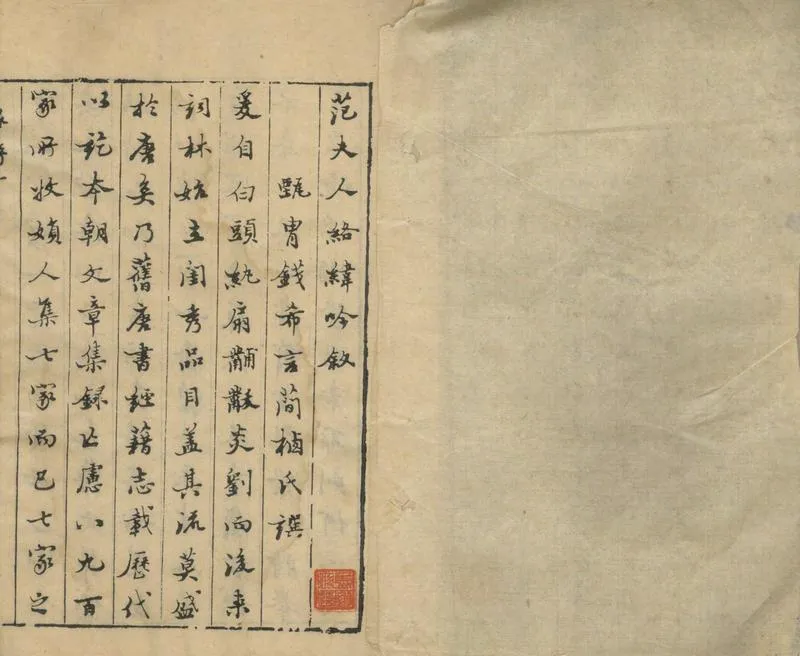 范夫人絡緯吟敘
甄冑錢希言簡栖氏譔
爰自白頭紈扇黼黻炎劉而後来
詞林始立閨秀品目盖其流莫盛
於唐矣乃舊唐書經籍志載歷代
以訖本朝文章集録亡慮八九百
家所收婦人集七家而已七家之